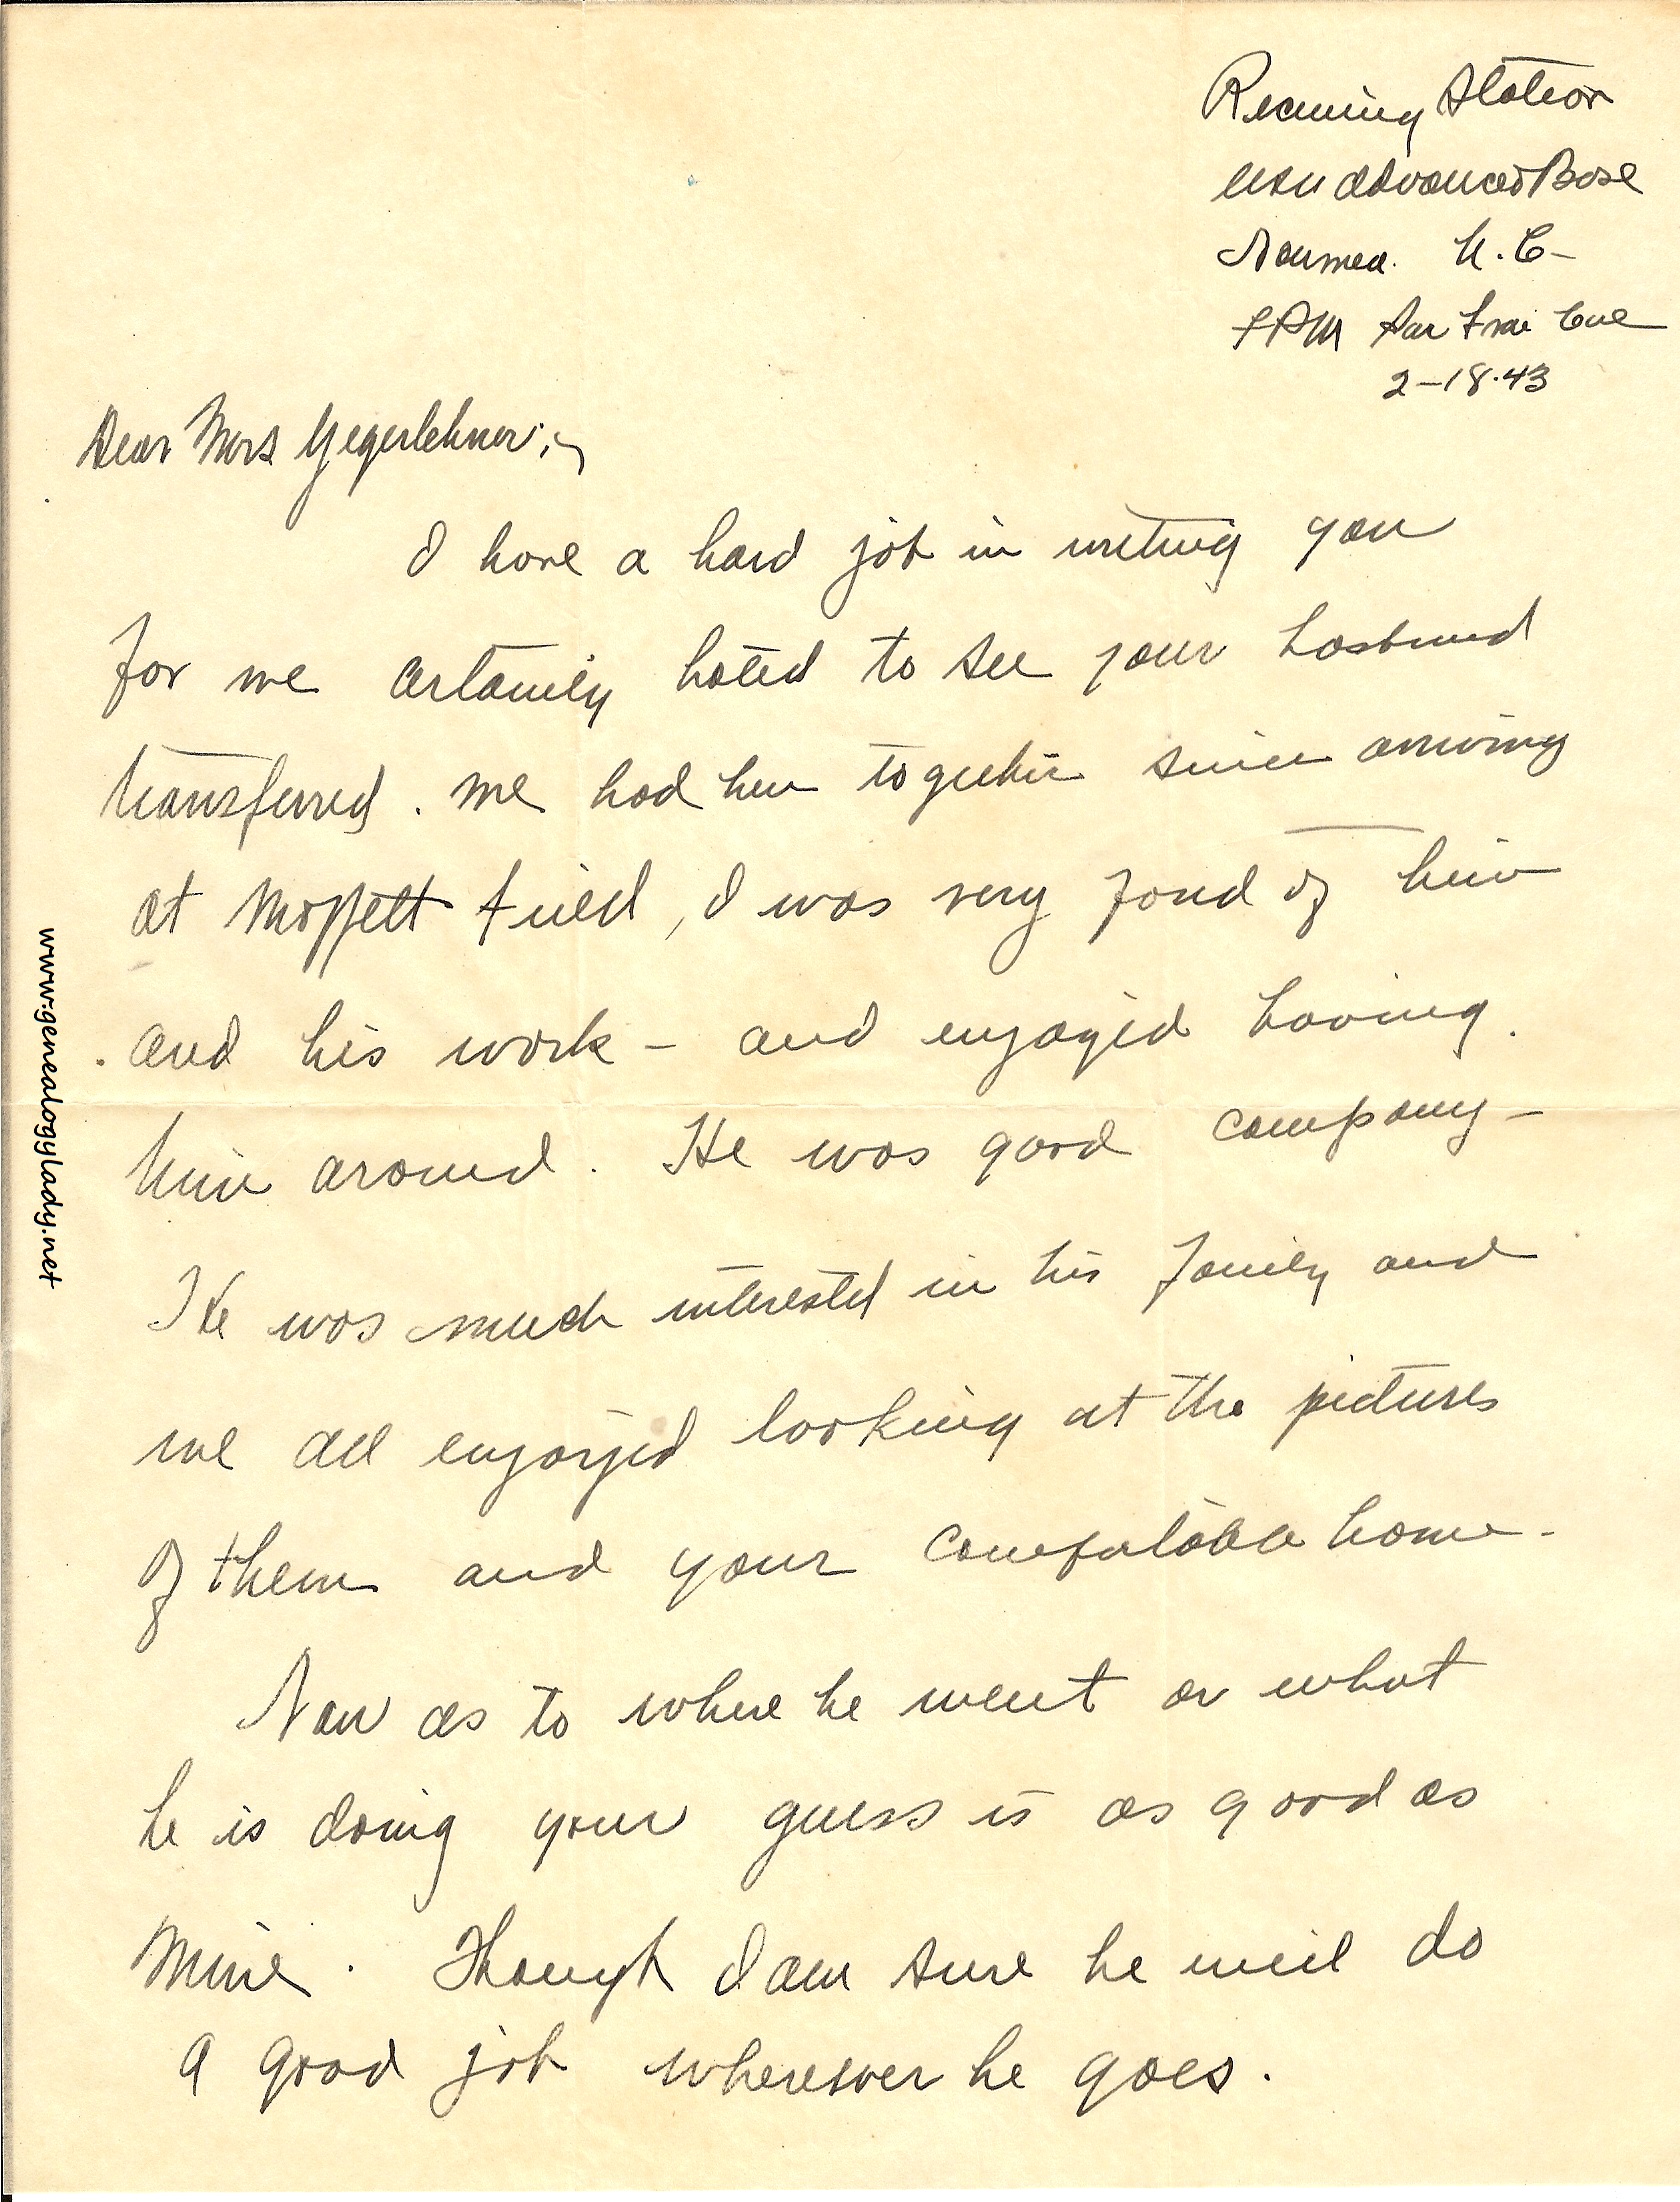 Receiving Station
USN Advanced Base
Noumea. N.C-
FPM San Fran Cal
2-18-43
Dear Mrs Yegerlehner:-
I have a hard job in writing you
for we certainly hated to see your husband
transferred. We had been together since arriving
at Moffett Field, I was very fond of him
and his work - and enjoyed having
him around. He was good company -
He was much interested in his family and
we all enjoyed looking at the pictures
of them and your comfortable home -
Now as to where he went or what
he is doing your guess is as good as
mine. Though I am sure he will do
a good job wherever he goes.
www.genealogylady.net